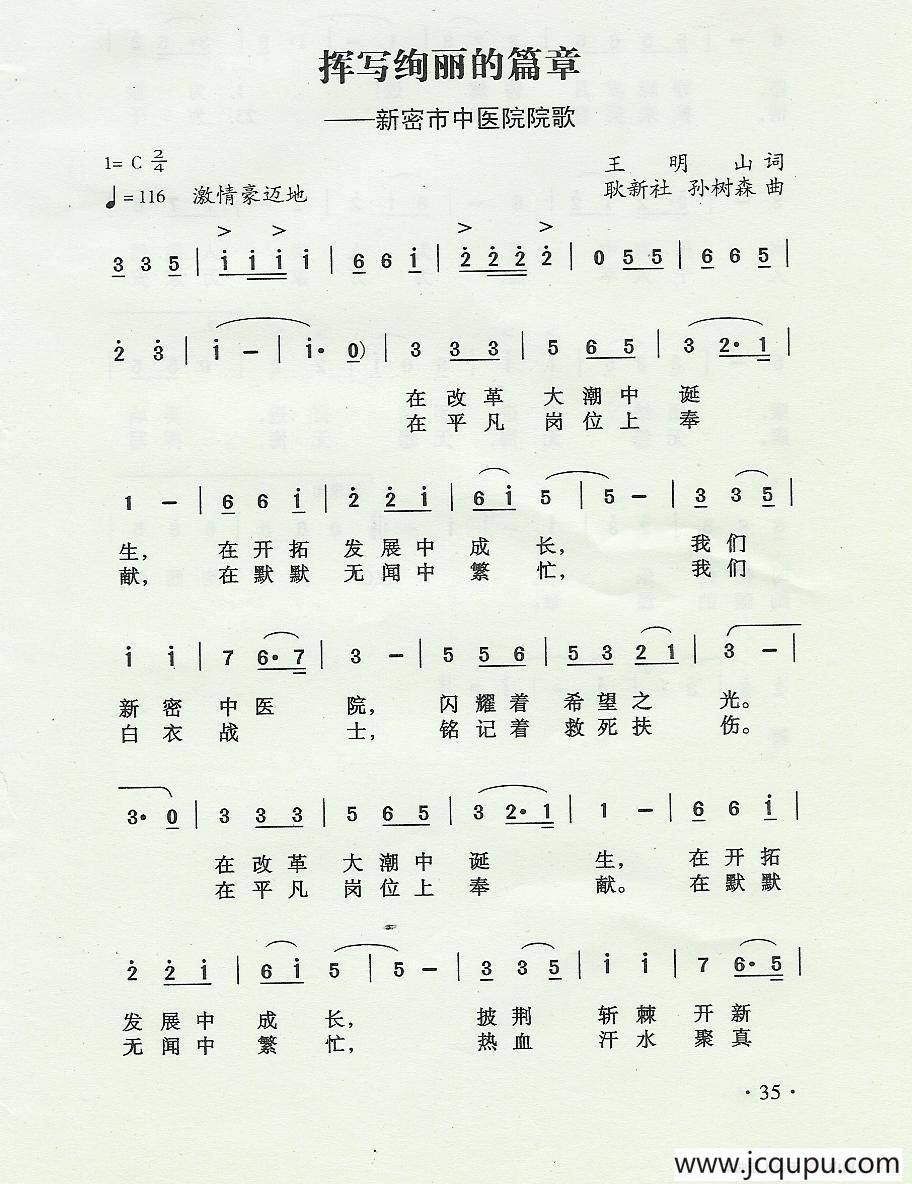 挥写绚丽的篇章
——新密市中医院院歌
1= C 2/4
王 明 山 词
♩=116 激情豪迈地
耿新社 孙树森 曲
3 3 5 | i i i i | 6 6 i | 2̇ 2̇ 2̇ 2̇ | 0 5 5 | 6 6 5 |
2̇ 3̇ | i − | i· 0) | 3 3 3 | 5 6 5 | 3 2· 1 |
在 改 革 大 潮 中 诞
在 平 凡 岗 位 上 奉
1 − | 6 6 i | 2̇ 2̇ i | 6 i 5 | 5 − | 3 3 5 |
生, 在 开 拓 发 展 中 成 长, 我 们
献, 在 默 默 无 闻 中 繁 忙, 我 们
i i | 7 6· 7 | 3 − | 5 5 6 | 5 3 2 1 | 3 − |
新 密 中 医 院, 闪 耀 着 希 望 之 光。
白 衣 战 士, 铭 记 着 救 死 扶 伤。
3· 0 | 3 3 3 | 5 6 5 | 3 2· 1 | 1 − | 6 6 i |
在 改 革 大 潮 中 诞 生, 在 开 拓
在 平 凡 岗 位 上 奉 献。 在 默 默
2̇ 2̇ i | 6 i 5 | 5 − | 3 3 5 | i i | 7 6· 5 |
发 展 中 成 长, 披 荆 斩 棘 开 新
无 闻 中 繁 忙, 热 血 汗 水 聚 真
· 35 ·
www.jcqupu.com